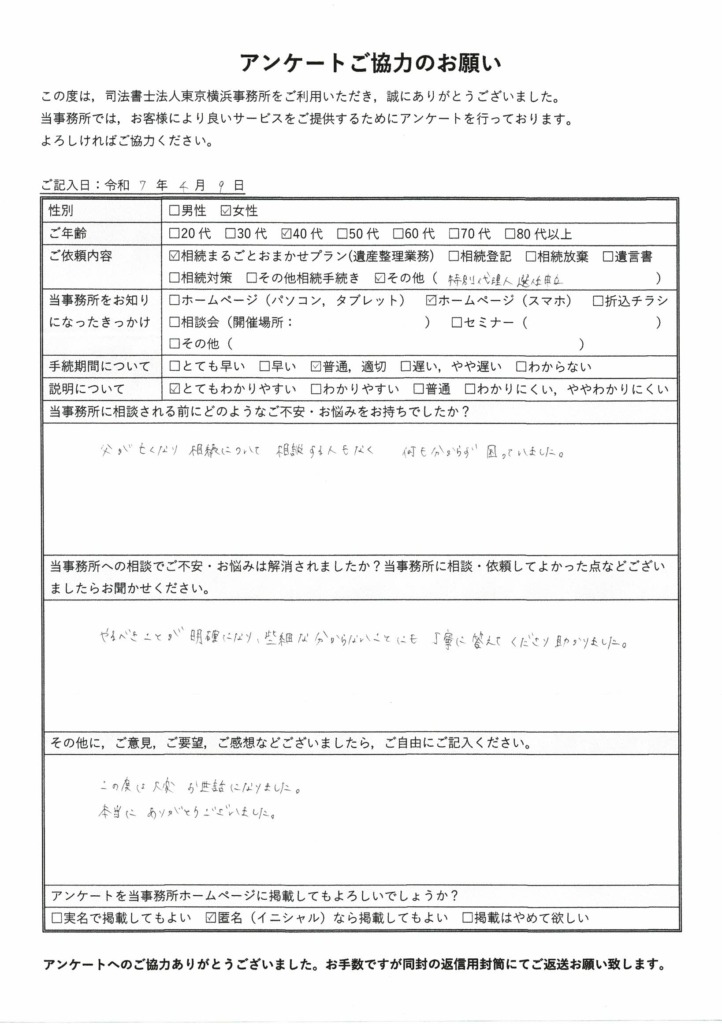 アンケートご協力のお願い
この度は，司法書士法人東京横浜事務所をご利用いただき，誠にありがとうございました。
当事務所では，お客様により良いサービスをご提供するためにアンケートを行っております。
よろしければご協力ください。
ご記入日：令和 7 年 4 月 9 日
性別 □男性 ☑女性
ご年齢 □20 代 □30 代 ☑40 代 □50 代 □60 代 □70 代 □80 代以上
ご依頼内容 ☑相続まるごとおまかせプラン(遺産整理業務) □相続登記 □相続放棄 □遺言書
□相続対策 □その他相続手続き ☑その他（ 特別代理人選任申立 ）
当事務所をお知り □ホームページ（パソコン，タブレット） ☑ホームページ（スマホ） □折込チラシ
になったきっかけ □相談会（開催場所： ） □セミナー（ ）
□その他（ ）
手続期間について □とても早い □早い ☑普通，適切 □遅い，やや遅い □わからない
説明について ☑とてもわかりやすい □わかりやすい □普通 □わかりにくい，ややわかりにくい
当事務所に相談される前にどのようなご不安・お悩みをお持ちでしたか？
父が亡くなり 相続について 相談する人もなく 何も分からず 困っていました。
当事務所への相談でご不安・お悩みは解消されましたか？当事務所に相談・依頼してよかった点などござい
ましたらお聞かせください。
やるべきことが 明確になり、些細な分からないことにも 丁寧に答えてくださり助かりました。
その他に，ご意見，ご要望，ご感想などございましたら，ご自由にご記入ください。
この度は大変 お世話になりました。
本当に ありがとうございました。
アンケートを当事務所ホームページに掲載してもよろしいでしょうか？
□実名で掲載してもよい ☑匿名（イニシャル）なら掲載してもよい □掲載はやめて欲しい
アンケートへのご協力ありがとうございました。お手数ですが同封の返信用封筒にてご返送お願い致します。